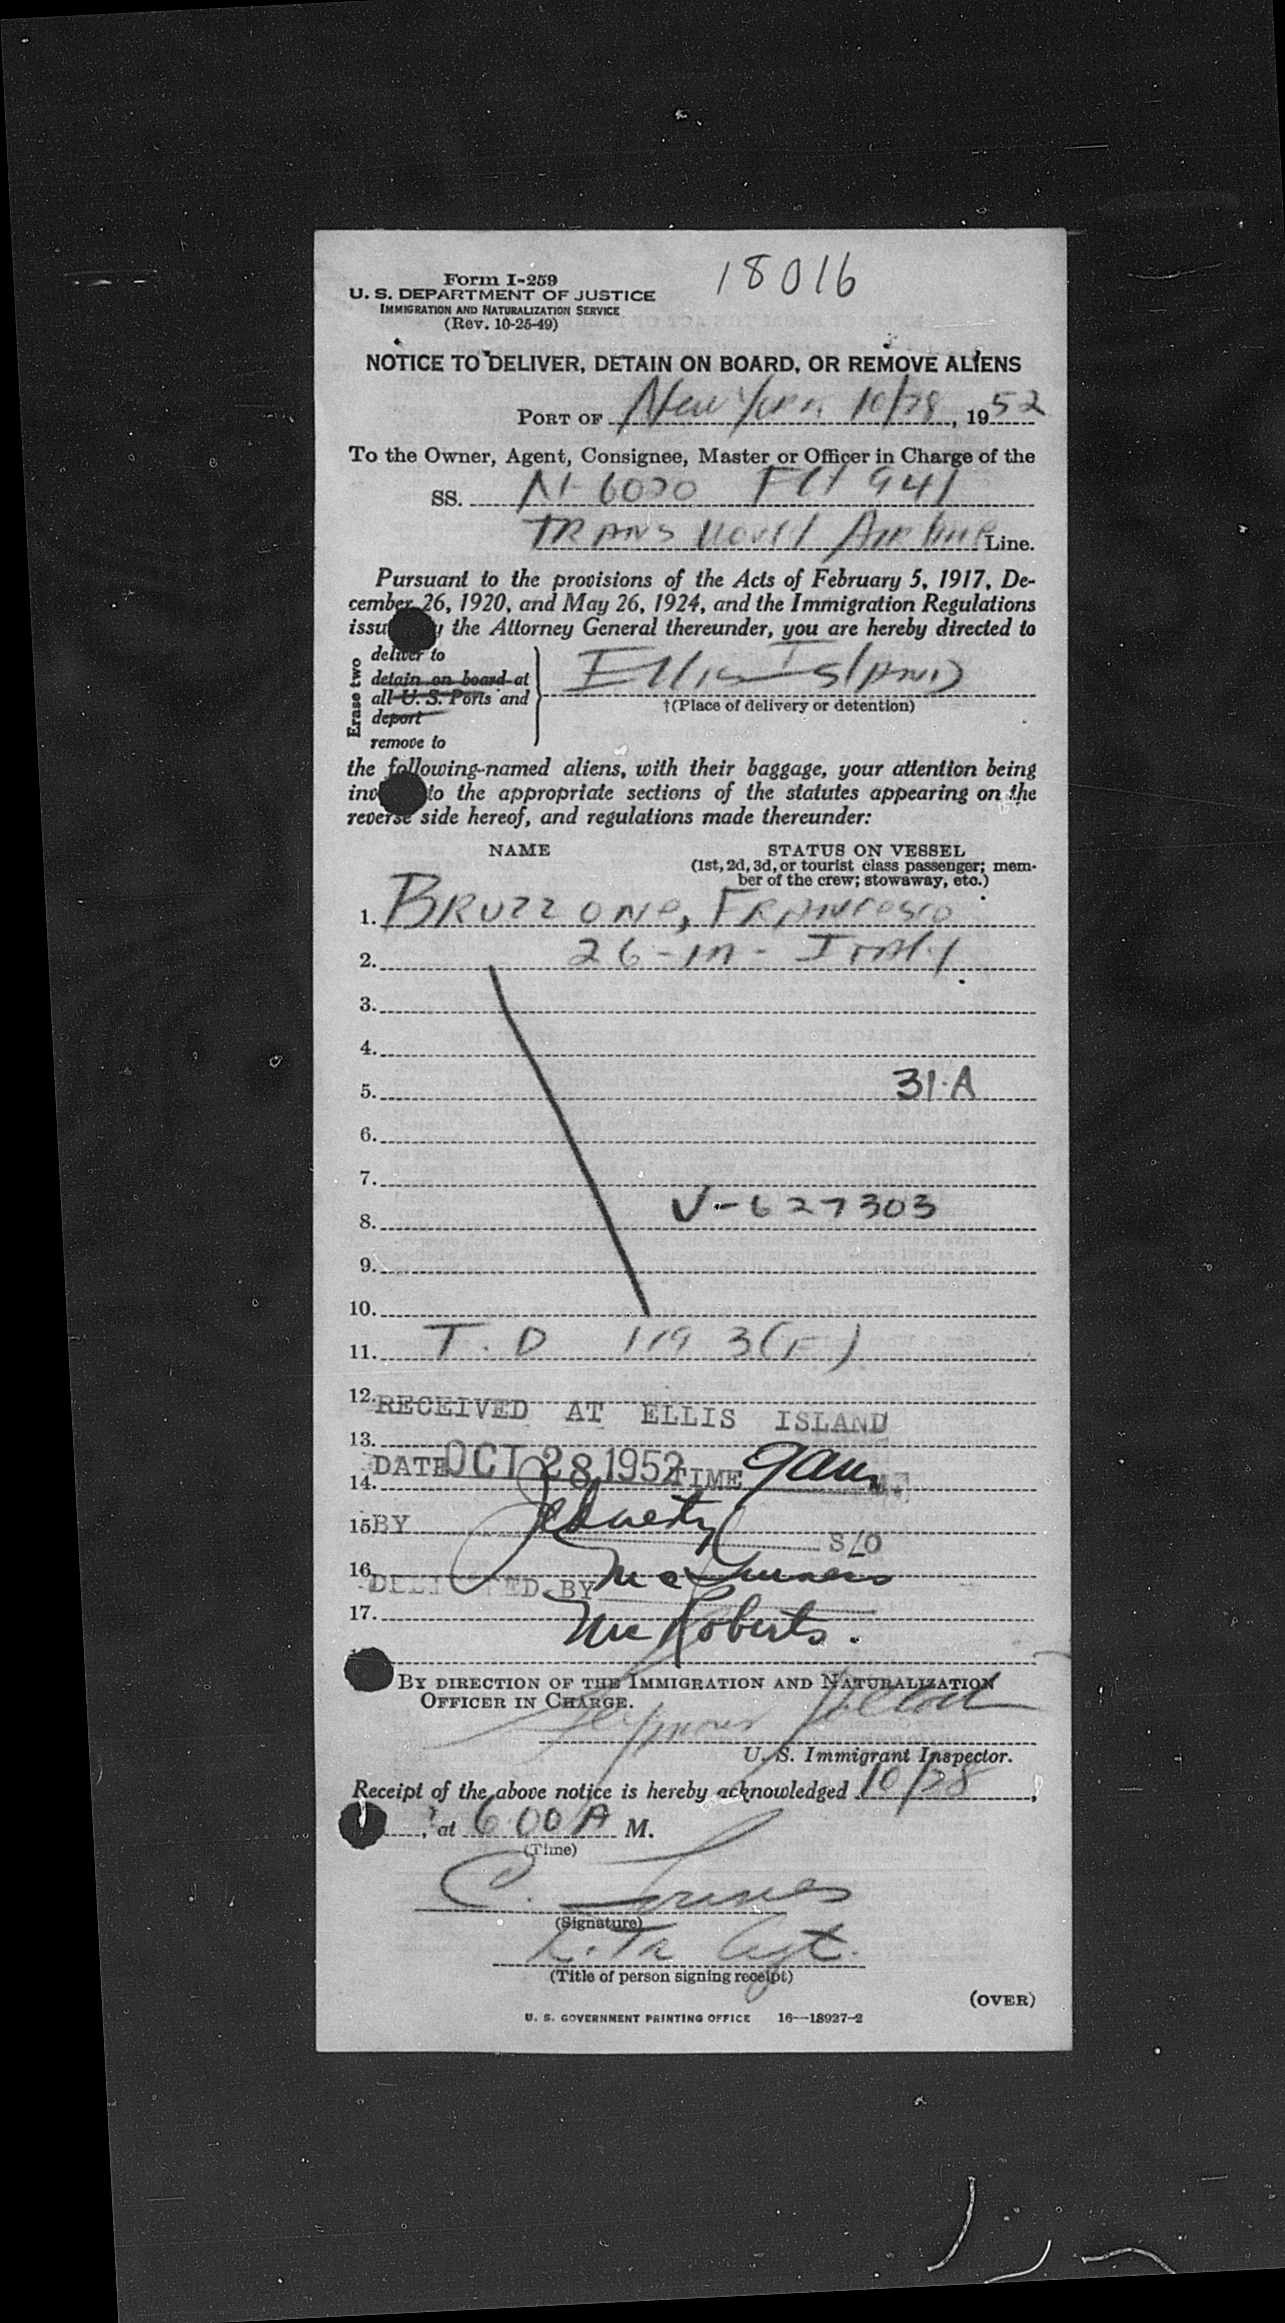 18016
Form I-259
U. S. DEPARTMENT OF JUSTICE
IMMIGRATION AND NATURALIZATION SERVICE
(Rev. 10-25-49)
NOTICE TO DELIVER, DETAIN ON BOARD, OR REMOVE ALIENS
PORT OF New York 10/28, 1952
To the Owner, Agent, Consignee, Master or Officer in Charge of the
SS. N 6020 Flt 941
TRANS World Air Line Line.
Pursuant to the provisions of the Acts of February 5, 1917, De-
cember 26, 1920, and May 26, 1924, and the Immigration Regulations
issu y the Attorney General thereunder, you are hereby directed to
Erase two
deliver to
detain on board at
all U. S. Ports and
deport
remove to
Ellis Island
†(Place of delivery or detention)
the following-named aliens, with their baggage, your attention being
inv to the appropriate sections of the statutes appearing on the
reverse side hereof, and regulations made thereunder:
NAME STATUS ON VESSEL
(1st, 2d, 3d, or tourist class passenger; mem-
ber of the crew; stowaway, etc.)
1. BRUZZONE, FRANCESCO
2. 26-m- Italy
3.
4.
5. 31-A
6.
7.
8. V-627303
9.
10.
11. T. D 119 3(F)
12. RECEIVED AT ELLIS ISLAND
13.
14. DATE OCT 28 1952 TIME 9am M.
15. BY S/O
16. DELIVERED BY
17. McRoberts.
BY DIRECTION OF THE IMMIGRATION AND NATURALIZATION
OFFICER IN CHARGE.
Seymour
U. S. Immigrant Inspector.
Receipt of the above notice is hereby acknowledged 10/28,
, at 6 00 A M.
(Time)
C.
(Signature)
Agt.
(Title of person signing receipt)
(OVER)
U. S. GOVERNMENT PRINTING OFFICE 16—18927-2